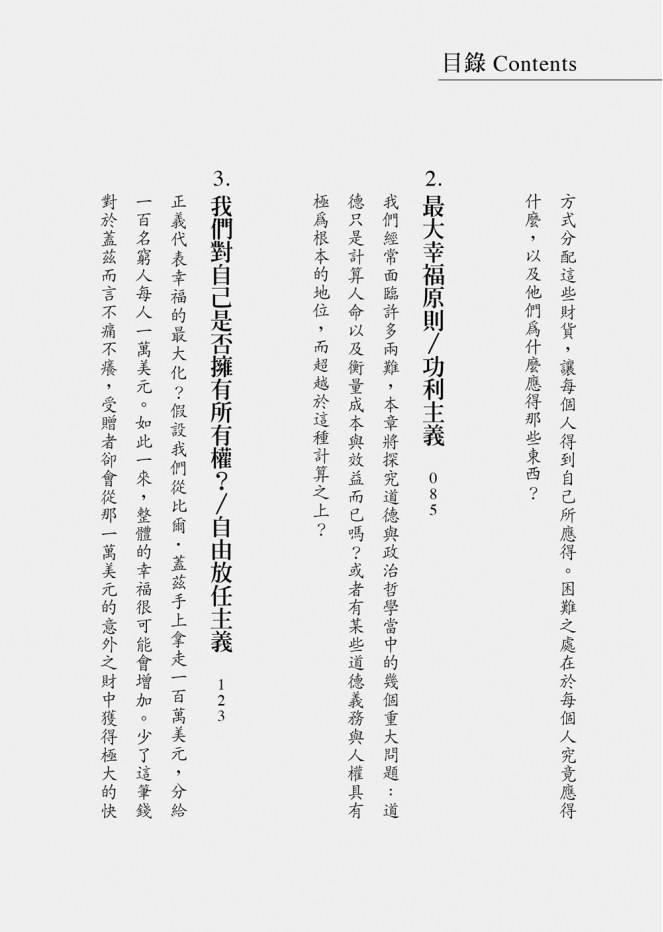 目錄 Contents
方式分配這些財貨，讓每個人得到自己所應得。困難之處在於每個人究竟應得
什麼，以及他們爲什麼應得那些東西？
2. 最大幸福原則／功利主義 085
我們經常面臨許多兩難，本章將探究道德與政治哲學當中的幾個重大問題：道
德只是計算人命以及衡量成本與效益而已嗎？或者有某些道德義務與人權具有
極爲根本的地位，而超越於這種計算之上？
3. 我們對自己是否擁有所有權？／自由放任主義 123
正義代表幸福的最大化？假設我們從比爾．蓋茲手上拿走一百萬美元，分給
一百名窮人每人一萬美元。如此一來，整體的幸福很可能會增加。少了這筆錢
對於蓋茲而言不痛不癢，受贈者卻會從那一萬美元的意外之財中獲得極大的快